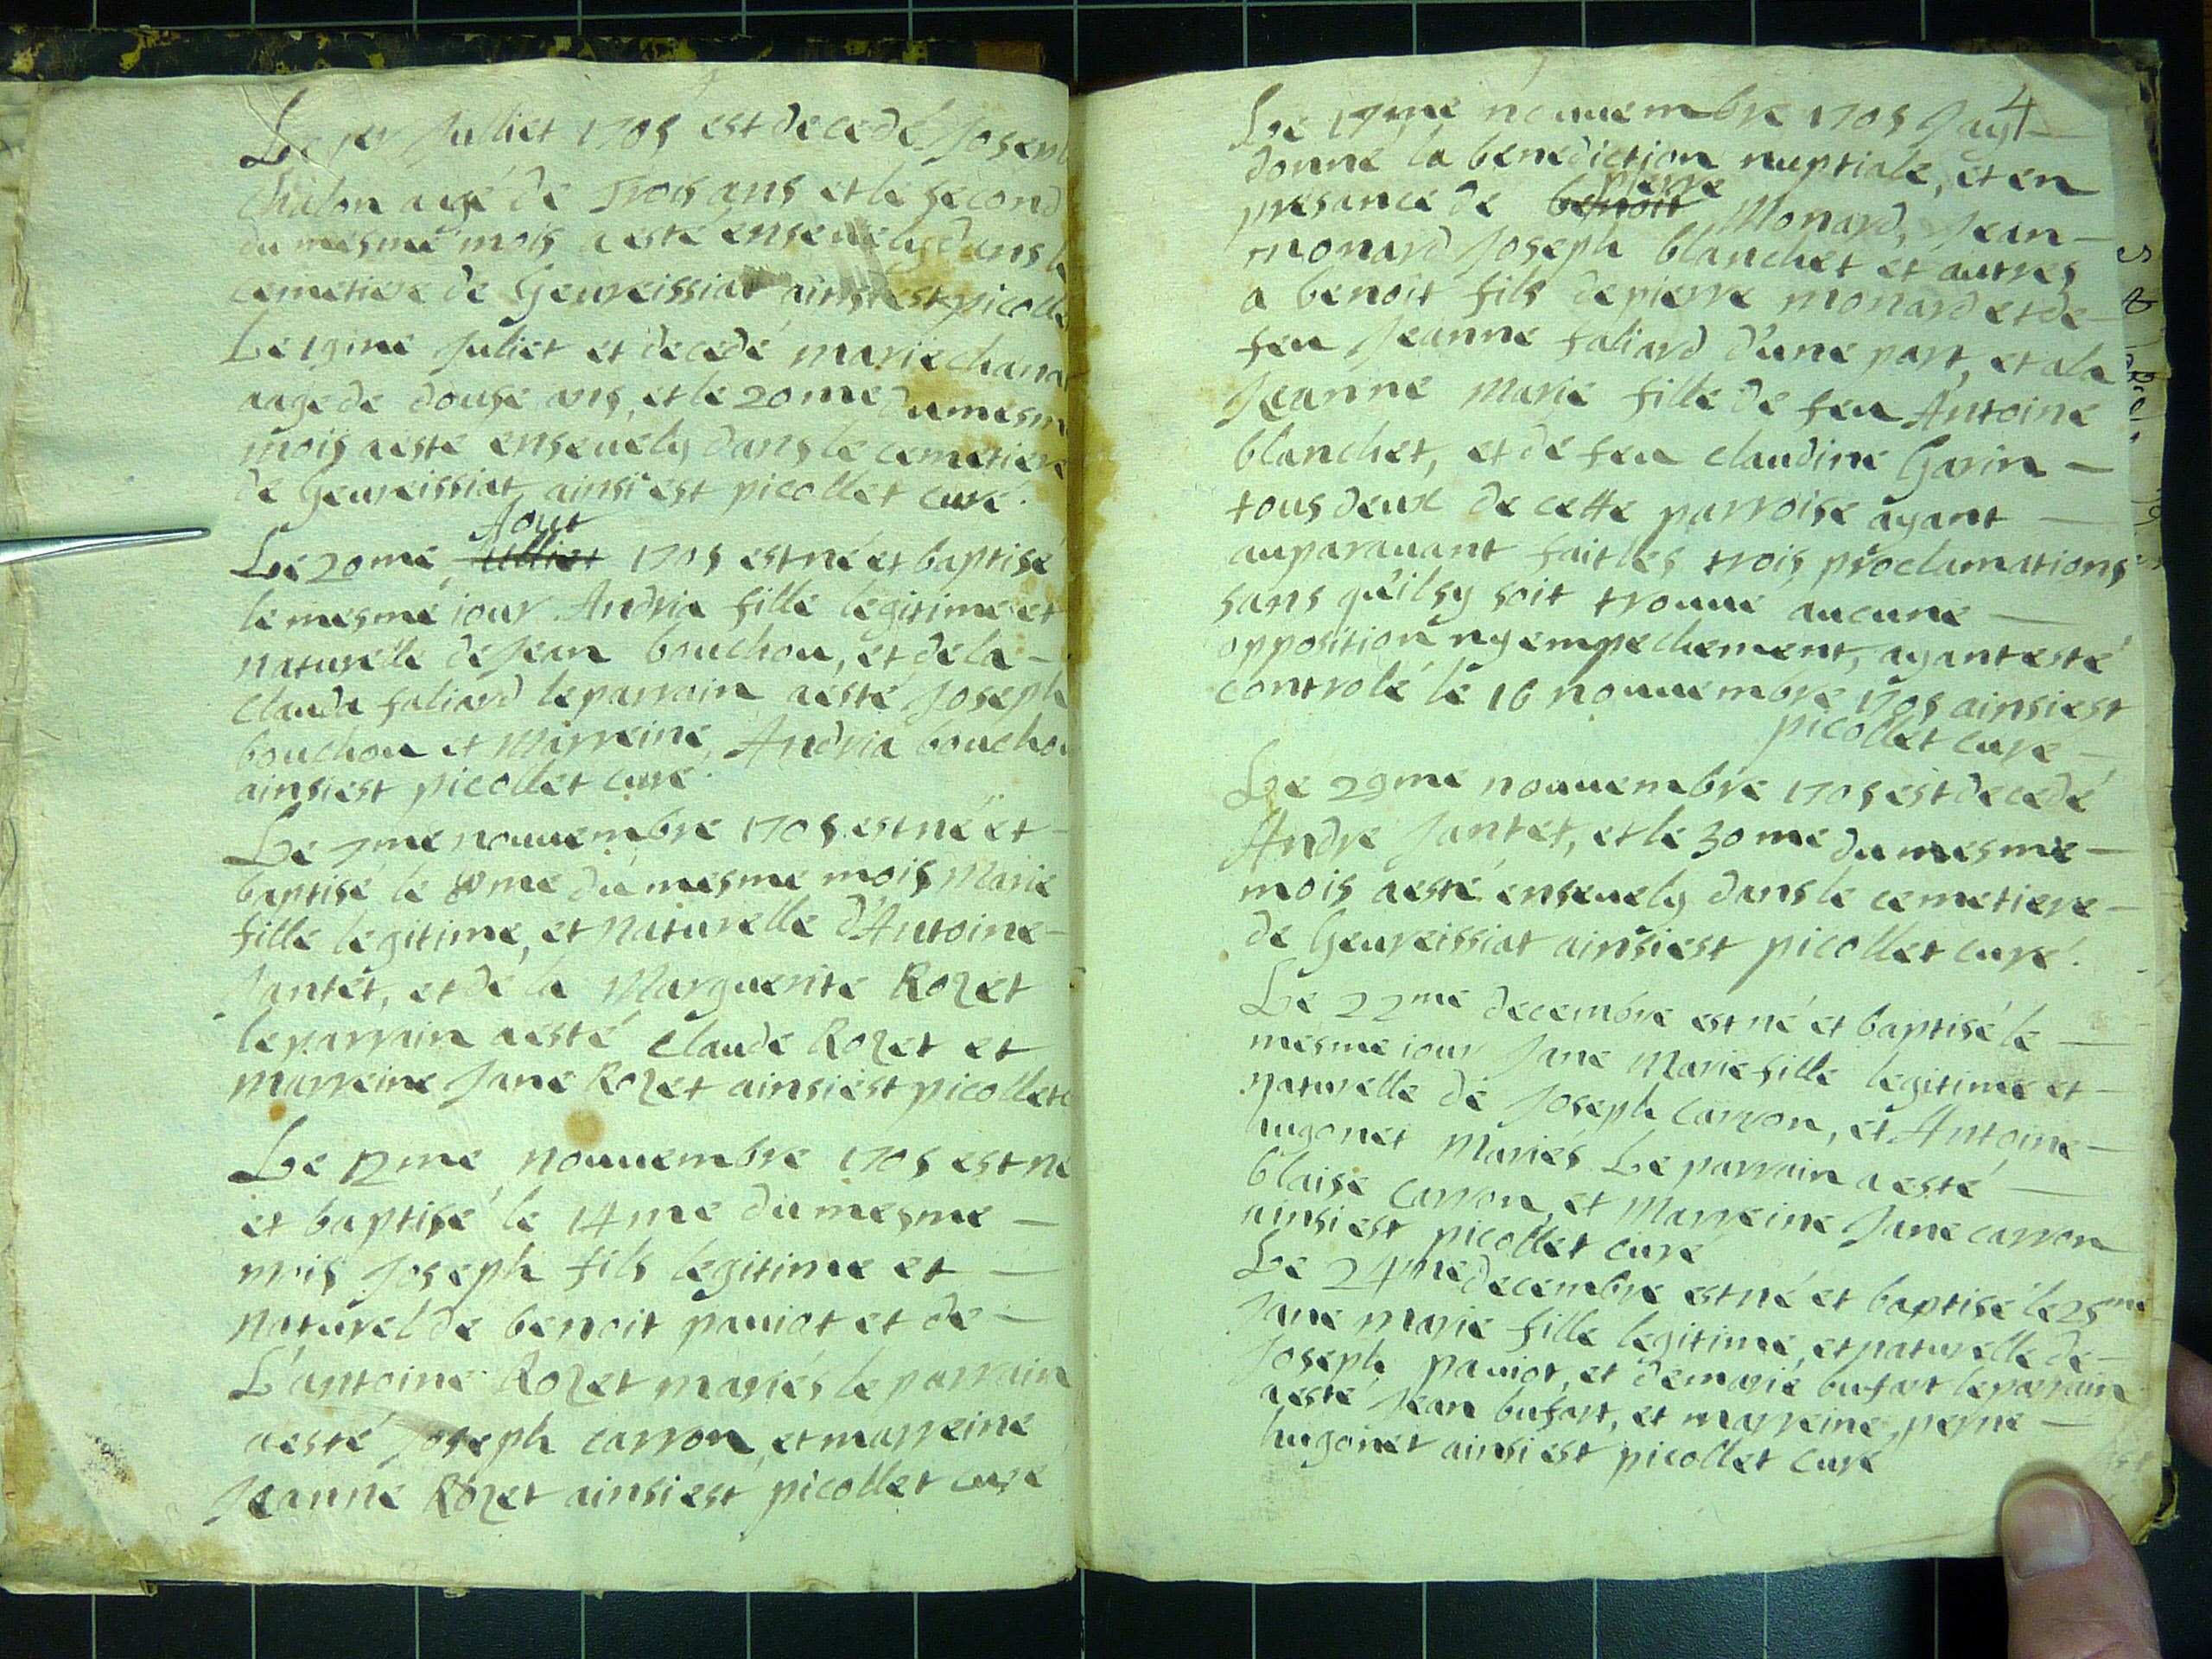 Le 1er Julliet 1705 est decedé Joseph
Chalon aagé de Trois ans et le second
du mesme mois a esté ensevely dans le
cemetiere de Geureissiat ainsi est picollet
Le 19me Juliet et decedé marie chana
aage de douse ans, et le 20me du mesm
mois a esté enseuely dans le cemetiere
de Geureissiat ainsi est picollet curé.
Aout
Le 20me Julliet 1705 est né et baptisé
le mesme iour Andria fille legitime et
naturelle de Jean bouchou, et de la —
Clauda faliard le parrain a esté Joseph
bouchou et Marreine, Andria bouchou
ainsi est picollet curé.
Le 7me nouuembre 1705 est né et —
baptisé le 8me du mesme mois Marie
fille legitime, et Naturelle d'Antoine —
Jantet, et de la Marguerite Rozet
le parrain a esté Claude Rozet et
Marreine Jane Rozet ainsi est picollet c
Le 12me nouuembre 1705 est né
et baptisé le 14me du mesme —
mois Joseph fils legitime et —
naturel de benoit pauiot et de —
L'antoine Rozet mariés le parrain
a esté Joseph carron, et marreine
Jeanne Rozet ainsi est picollet curé
4
Le 17me nouuembre 1705 Jay —
donne la benediction nuptiale, et en
pierre
presance de benoit Monard, Jean —
monard Joseph blanchet et autres
a benoit fils de pierre monard et de —
feu Jeanne faliard d'une part, et a la
Jeanne Marie fille de feu Antoine
blanchet, et de feu claudine Garin —
tous deux de cette parroise ayant —
auparauant fait les trois proclamations
sans qu'il sy soit trouué aucune —
opposition ny empechement, ayant esté
controlé le 16 nouuembre 1705 ainsi est
picollet cure —
Le 29me nouuembre 1705 est decedé
Andre Jantet, et le 30me du mesme —
mois a esté enseuely dans le cemetiere —
de Geureissiat ainsi est picollet curé.
Le 22me decembre est né et baptisé le —
mesme iour Jane Marie fille legitime et —
naturelle de Joseph Carron, et Antoine —
hugonet Mariés Le parrain a esté —
blaise Carron, et Marreine Jane carron
ainsi est picollet cure
Le 24me decembre est né et baptisé le 25me
Jane marie fille legitime, et naturelle de —
Joseph pauiot, et de marie bufart le parrain
a esté Jean bufart, et marreine, perne —
hugonet ainsi est picollet Cure